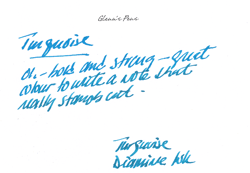 Glennie Pens
Turquoise
Oh - bold and strong - great
colour to write a note that
really stands out.
Turquoise
Diamine Ink